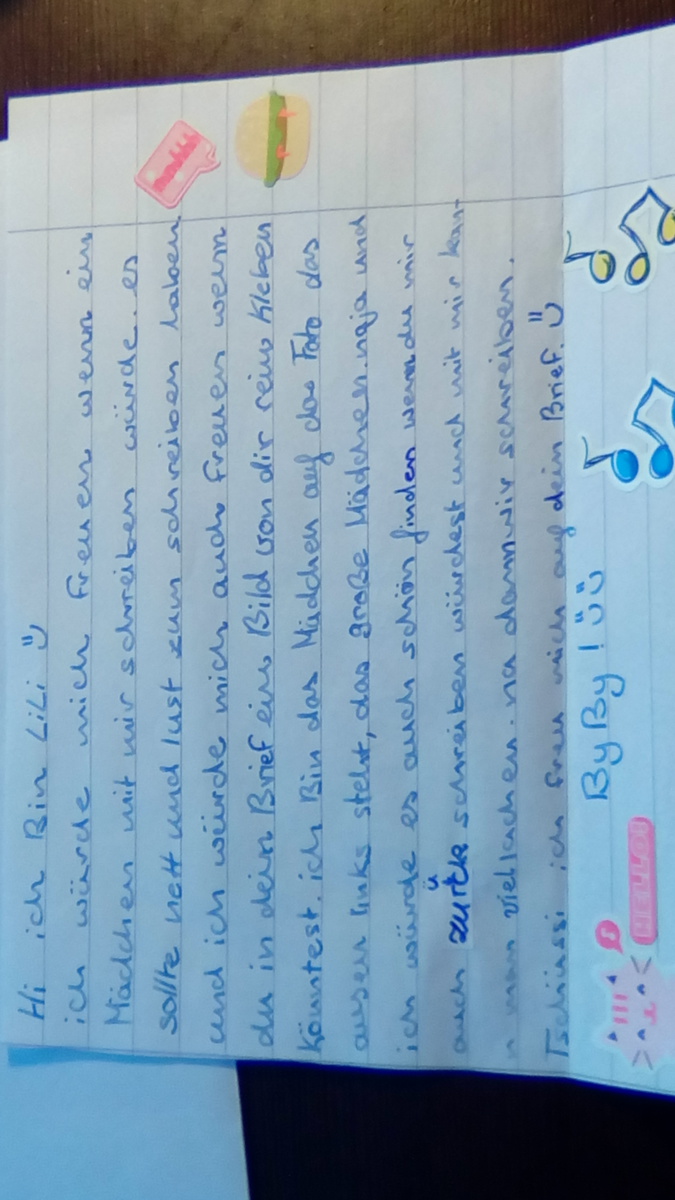 Hi ich Bin LiLi
ich würde mich freuen wenn ein
Mädchen mit mir schreiben würde. es
sollte nett und lust zum schreiben haben.
und ich würde mich auch freuen wenn
du in dein Brief ein Bild von dir rein Kleben
Könntest. ich Bin das Mädchen auf das Foto das
ausen links steht, das große Mädchen. naja und
ich würde es auch schön finden wenn du mir
auch zurüke schreiben würdest und mit mir kan-
n man viel lachen. na dann wir schreiben.
Tschüssi ich freu mich auf dein Brief.
ByBy!
HELLO!